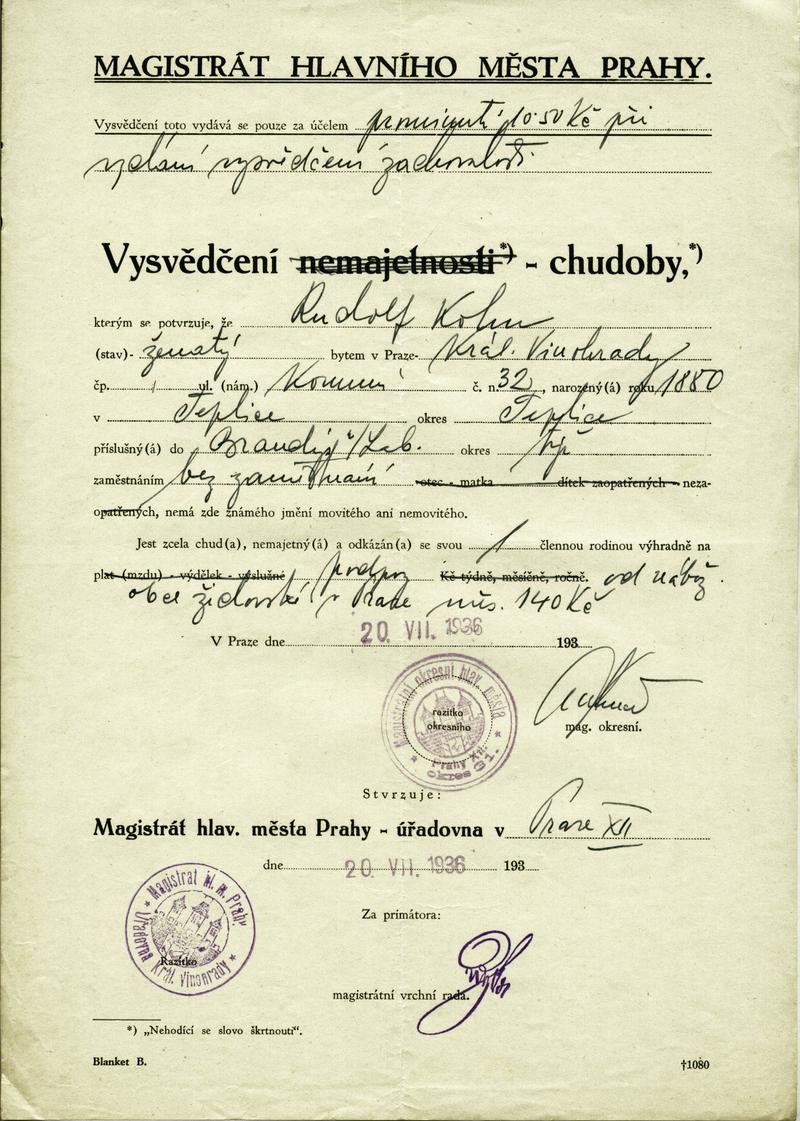 MAGISTRÁT HLAVNÍHO MĚSTA PRAHY.
Vysvědčení toto vydává se pouze za účelem prominutí 10·50 Kč při
vydání vysvědčení zachovalosti
Vysvědčení nemajetnosti*) - chudoby,*)
kterým se potvrzuje, že Rudolf Kohn
(stav)- ženatý bytem v Praze- Král. Vinohrady
čp. / ul. (nám.) č. n. 32, narozený(á) roku 1880
v Teplice okres Teplice
příslušný(á) do Brandýs n/Lab. okres týž
zaměstnáním bez zaměstnání otec - matka dítek zaopatřených - neza-
opatřených, nemá zde známého jmění movitého ani nemovitého.
Jest zcela chud(a), nemajetný(á) a odkázán(a) se svou 1 člennou rodinou výhradně na
plat (mzdu) - výdělek - výslužné podpor Kč týdně, měsíčně, ročně. od nábož.
obce židovské v Praze měs. 140 Kč
V Praze dne 20. VII. 1936 193
Magistrátní okresní hlav. města
Prahy XII.
okres 31.
razítko
okresního
mag. okresní.
Stvrzuje:
Magistrát hlav. města Prahy - úřadovna v Praze XII
dne 20. VII. 1936 193
Magistrát hl. m. Prahy
Úřadovna
Král. Vinohrady
Razítko
Za primátora:
magistrátní vrchní rada.
*) „Nehodící se slovo škrtnouti“.
Blanket B.
†1080